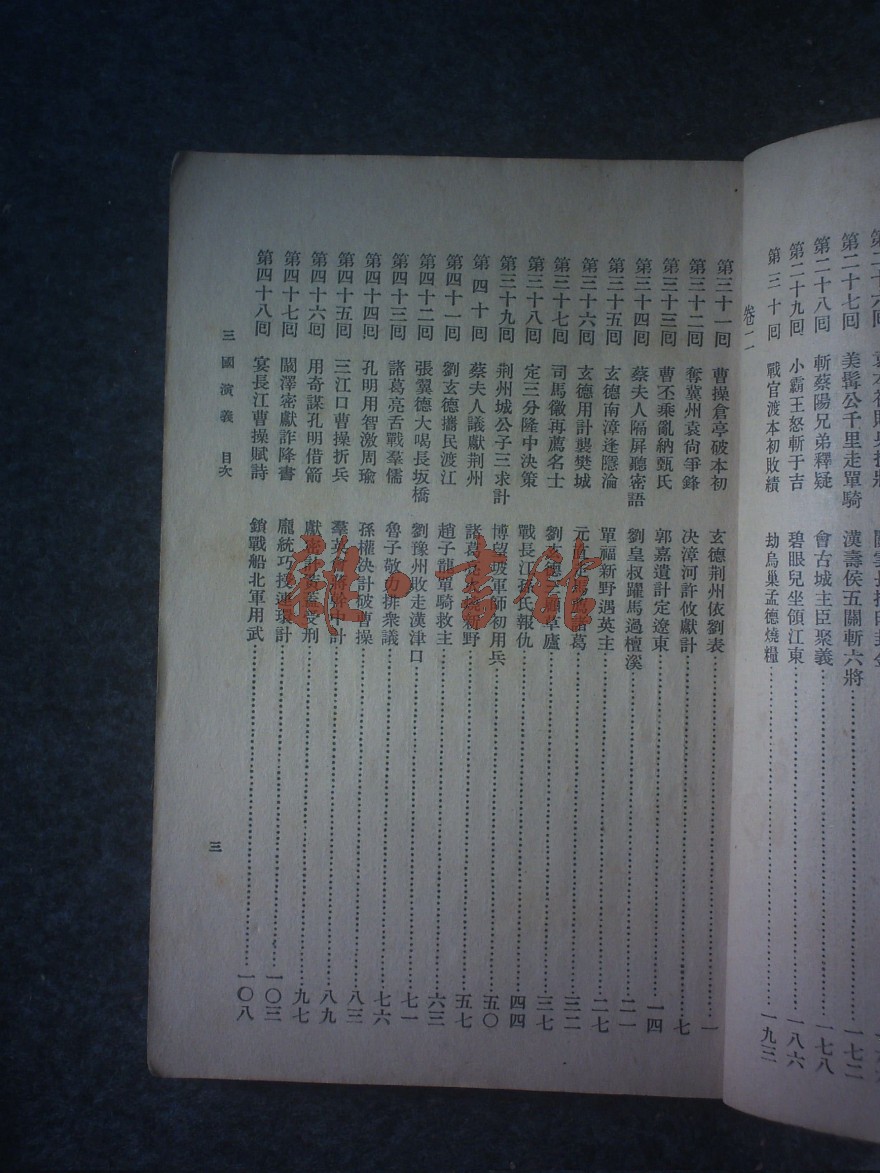 第二十七回 美髯公千里走單騎 漢壽侯五關斬六將……一七二
第二十八回 斬蔡陽兄弟釋疑 會古城主臣聚義……一七八
第二十九回 小霸王怒斬于吉 碧眼兒坐領江東……一八六
第三十回 戰官渡本初敗績 劫烏巢孟德燒糧……一九三
卷二
第三十一回 曹操倉亭破本初 玄德荆州依劉表……一
第三十二回 奪冀州袁尙爭鋒 決漳河許攸獻計……七
第三十三回 曹丕乘亂納甄氏 郭嘉遺計定遼東……一四
第三十四回 蔡夫人隔屏聽密語 劉皇叔躍馬過檀溪……二一
第三十五回 玄德南漳逢隱淪 單福新野遇英主……二七
第三十六回 玄德用計襲樊城 元直走馬薦諸葛……三二
第三十七回 司馬徽再薦名士 劉玄德三顧草廬……三七
第三十八回 定三分隆中決策 戰長江孫氏報仇……四四
第三十九回 荆州城公子三求計 博望坡軍師初用兵……五〇
第四十回 蔡夫人議獻荆州 諸葛亮火燒新野……五七
第四十一回 劉玄德攜民渡江 趙子龍單騎救主……六三
第四十二回 張翼德大喝長坂橋 劉豫州敗走漢津口……七一
第四十三回 諸葛亮舌戰羣儒 魯子敬力排衆議……七六
第四十四回 孔明用智激周瑜 孫權決計破曹操……八三
第四十五回 三江口曹操折兵 羣英會蔣幹中計……八九
第四十六回 用奇謀孔明借箭 獻密計黃蓋受刑……九七
第四十七回 闞澤密獻詐降書 龐統巧授連環計……一〇三
第四十八回 宴長江曹操賦詩 鎖戰船北軍用武……一〇八
三國演義 目次 三
書舘